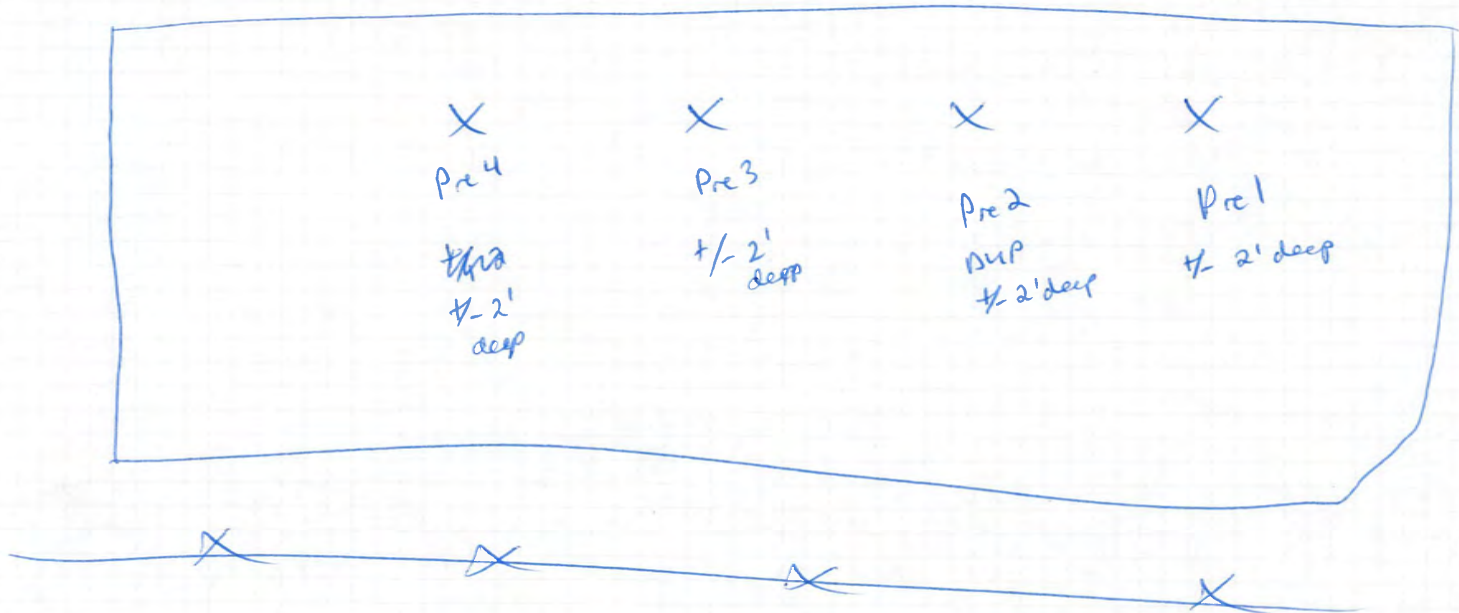 Pre 4
+/- 2'
deep
Pre 3
+/- 2'
deep
Pre 2
DUP
+/- 2' deep
Pre 1
+/- 2' deep